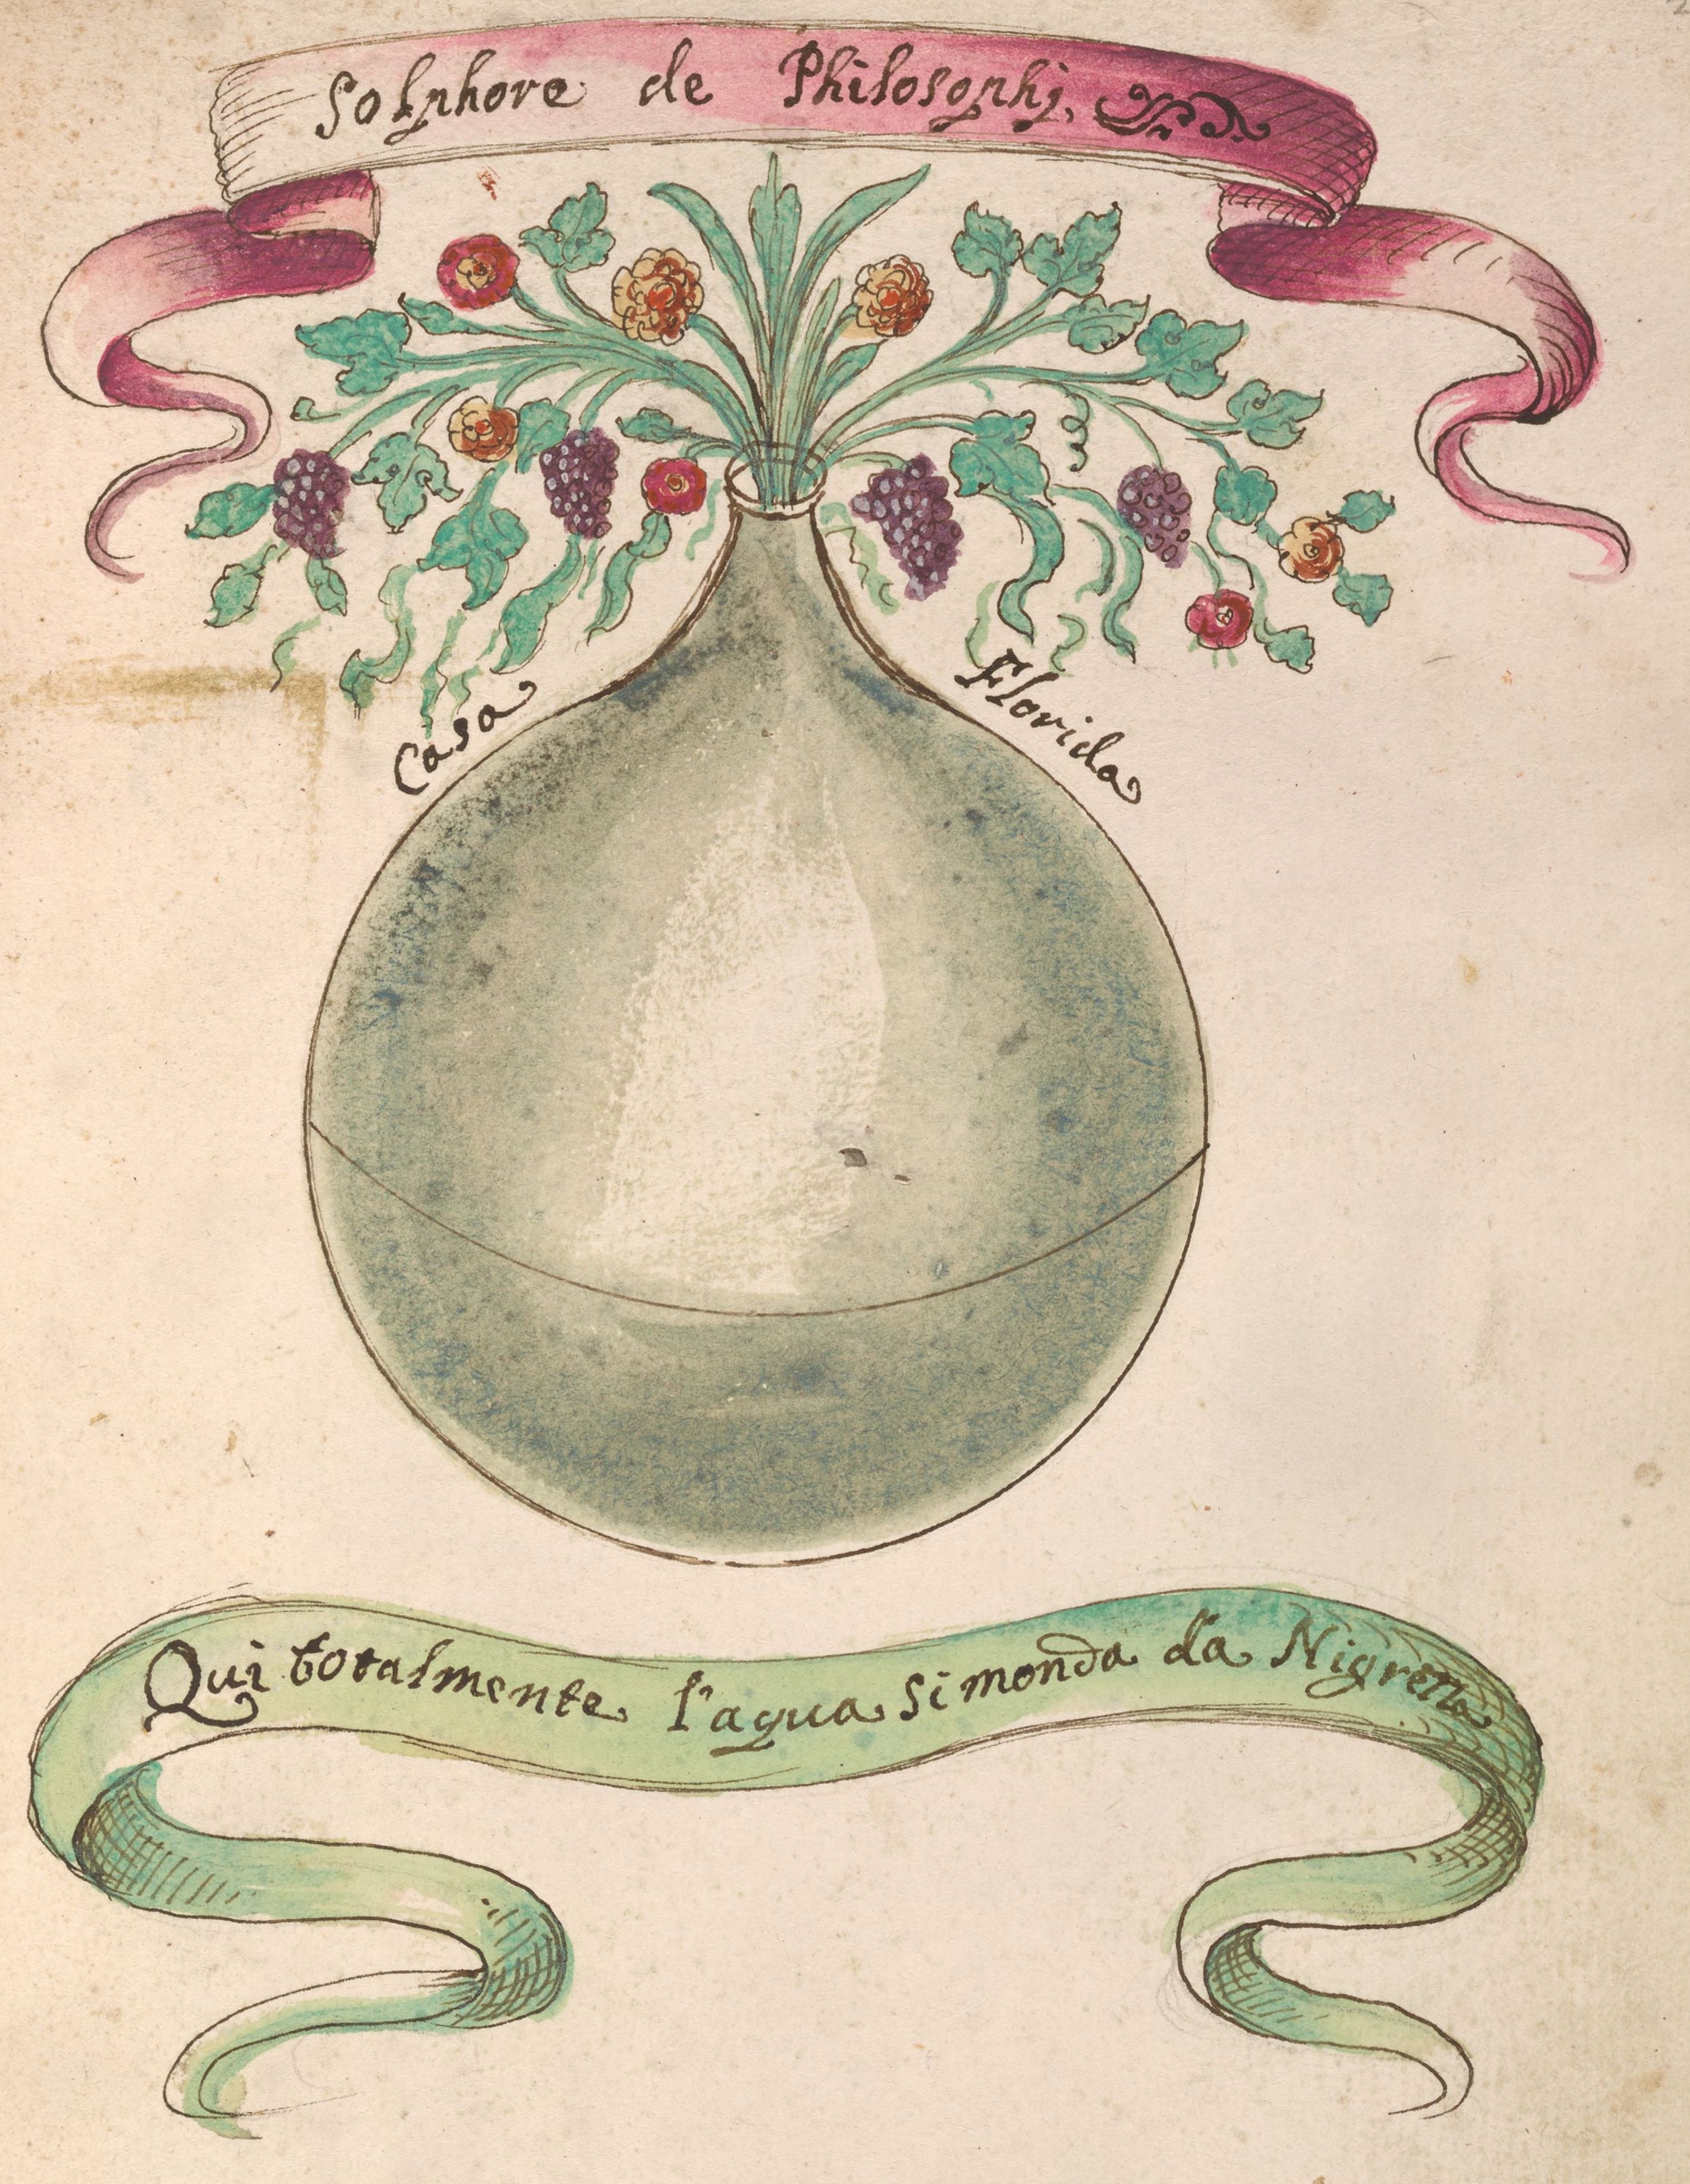 Solphore de Philosophi,
Casa Florida
Qui totalmente l'aqua si monda da Nigrezza